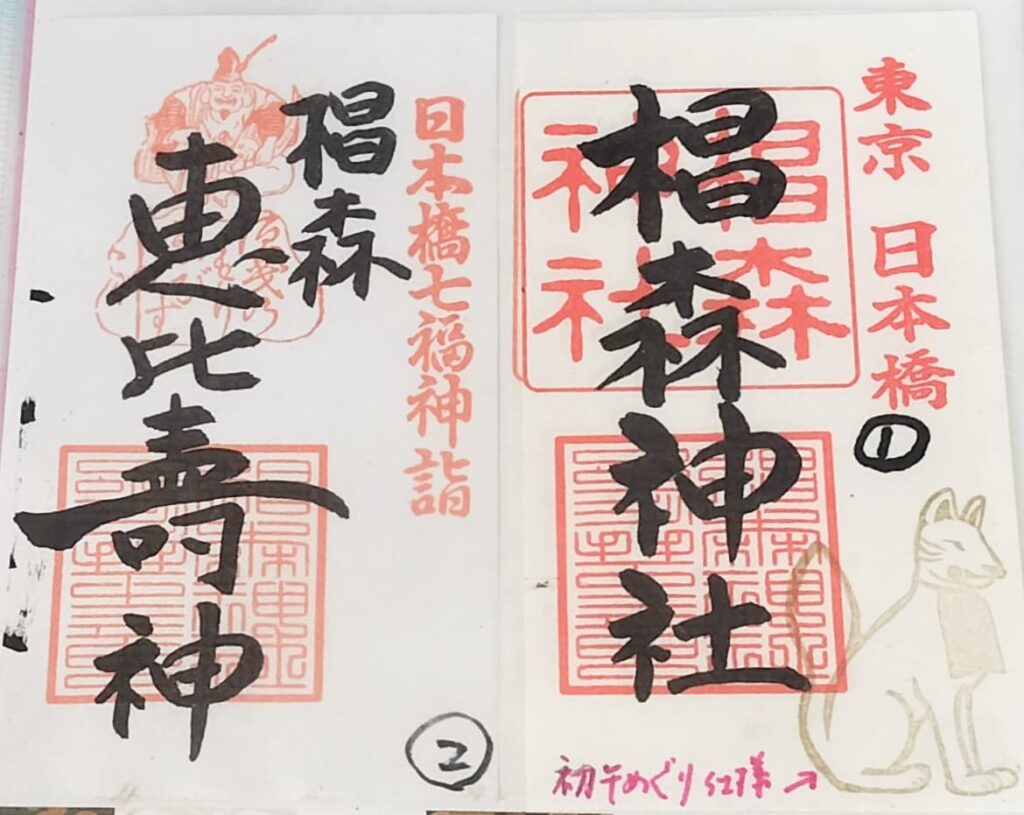 東京 日本橋
椙森神社
椙森
神社
①
初午めぐり仕様→
日本橋七福神詣
椙森
恵比壽神
②